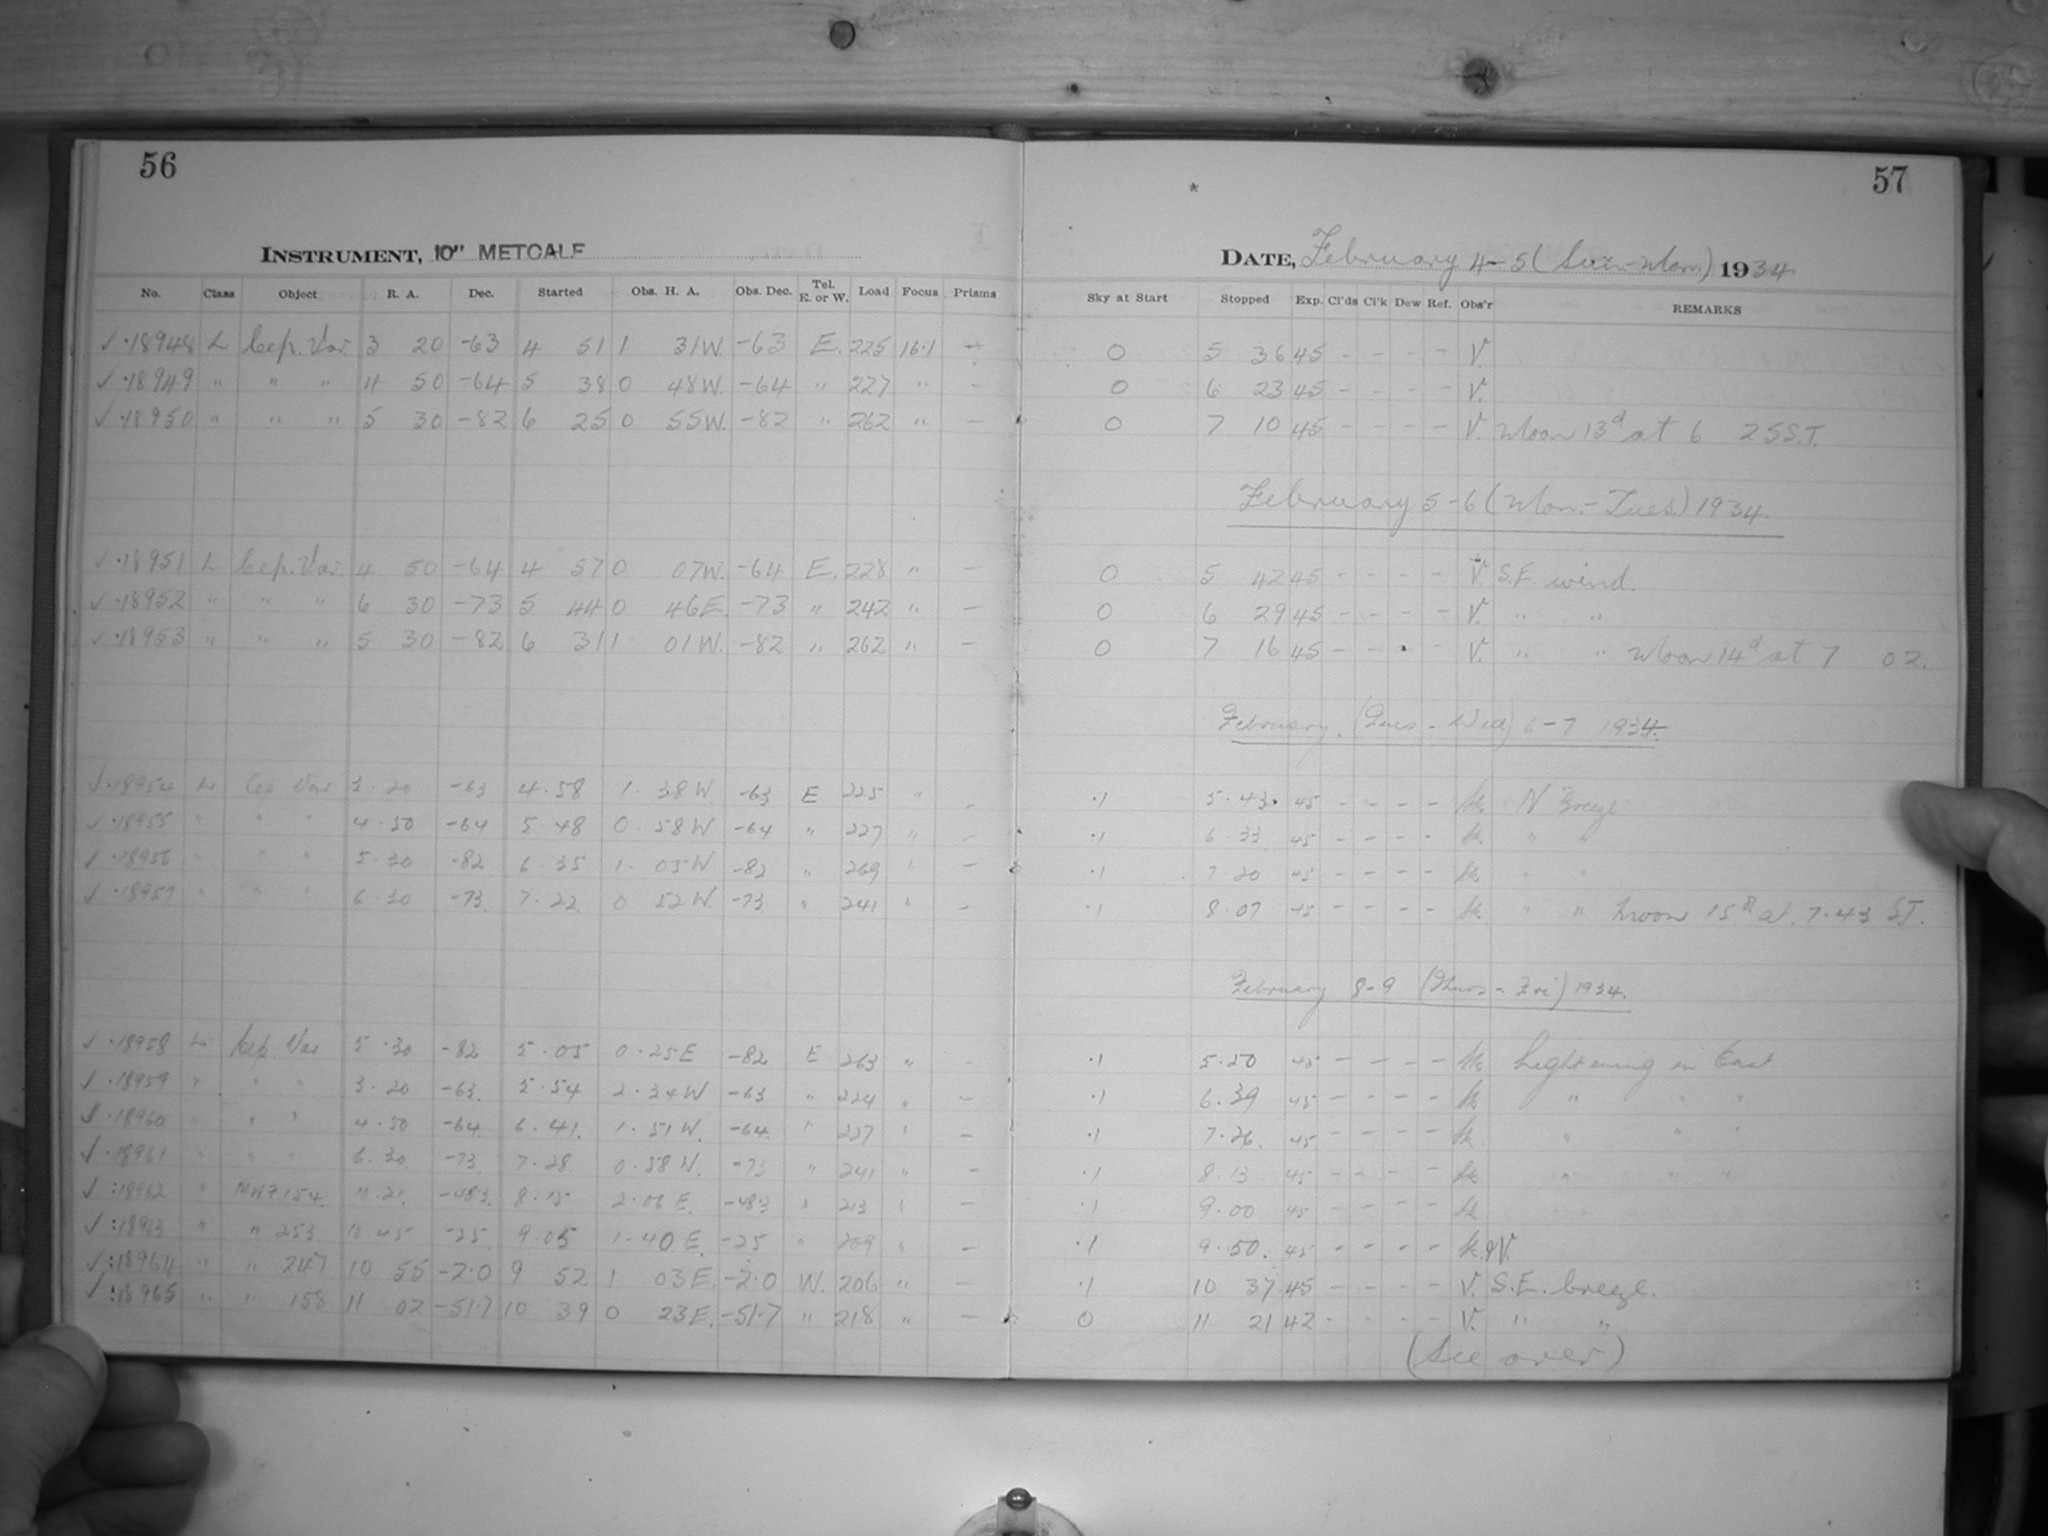 56
INSTRUMENT, 10" METCALF
No. Class Object R. A. Dec. Started Obs. H. A. Obs. Dec. Tel. E. or W. Load Focus Prisms
✓ ·18948 L Cep. Var. 3 20 -63 4 51 1 31W. -63 E. 225 16·1 -
✓ ·18949 " " " 4 50 -64 5 38 0 48W. -64 " 227 " -
✓ ·18950 " " " 5 30 -82 6 25 0 55W. -82 " 262 " -
✓ ·18951 L Cep. Var. 4 50 -64 4 57 0 07W. -64 E. 228 " -
✓ ·18952 " " " 6 30 -73 5 44 0 46E. -73 " 242 " -
✓ ·18953 " " " 5 30 -82 6 31 1 01W. -82 " 262 " -
✓ ·18954 L Cep Var 3·20 -63 4·58 1·38W -63 E 225 " -
✓ ·18955 " " " 4·50 -64 5·48 0·58W -64 " 227 " -
✓ ·18956 " " " 5·30 -82 6·35 1·05W -82 " 269 " -
✓ ·18957 " " " 6·30 -73 7·22 0 52W. -73 " 241 " -
✓ ·18958 L Cep Var 5·30 -82 5·05 0·25E -82 E 263 " -
✓ ·18959 " " " 3·20 -63 5·54 2·34W -63 " 224 " -
✓ ·18960 " " " 4·50 -64 6·41 1·51W. -64 " 227 " -
✓ ·18961 " " " 6·30 -73 7·28 0·58W. -73 " 241 " -
✓ :18962 " MWF 154 10·21 -48·3 8·15 2·06E. -48·3 " 213 " -
✓ :18963 " " 253 10·45 -25 9·05 1·40E. -25 " 209 " -
✓ :18964 " " 247 10 55 -2·0 9 52 1 03E. -2·0 W. 206 " -
✓ :18965 " " 158 11 02 -51·7 10 39 0 23E. -51·7 " 218 " -
57
*
DATE, February 4-5 (Sun.-Mon.) 1934
Sky at Start Stopped Exp. Cl'ds Cl'k Dew Ref. Obs'r REMARKS
0 5 36 45 - - - - V.
0 6 23 45 - - - - V.
0 7 10 45 - - - - V. Moon 13d at 6 25 S.T.
February 5-6 (Mon.-Tues) 1934.
0 5 42 45 - - - - V. S.E. wind.
0 6 29 45 - - - - V. " "
0 7 16 45 - - - - V. " " Moon 14d at 7 02.
February. (Tues-Wed) 6-7 1934.
·1 5·43· 45 - - - - N Breeze
·1 6·33 45 - - - - " "
·1 7·20 45 - - - - " "
·1 8·07 45 - - - - " " Moon 15d at 7·43 ST.
February 8-9 (Thurs-Fri) 1934.
·1 5·50 45 - - - - Lightening in East
·1 6·39 45 - - - - " " "
·1 7·26. 45 - - - - " " "
·1 8·13 45 - - - - " " "
·1 9·00 45 - - - -
·1 9·50. 45 - - - - &V.
·1 10 37 45 - - - - V. S.E. breeze.
0 11 21 42 - - - - V. " "
(See over)